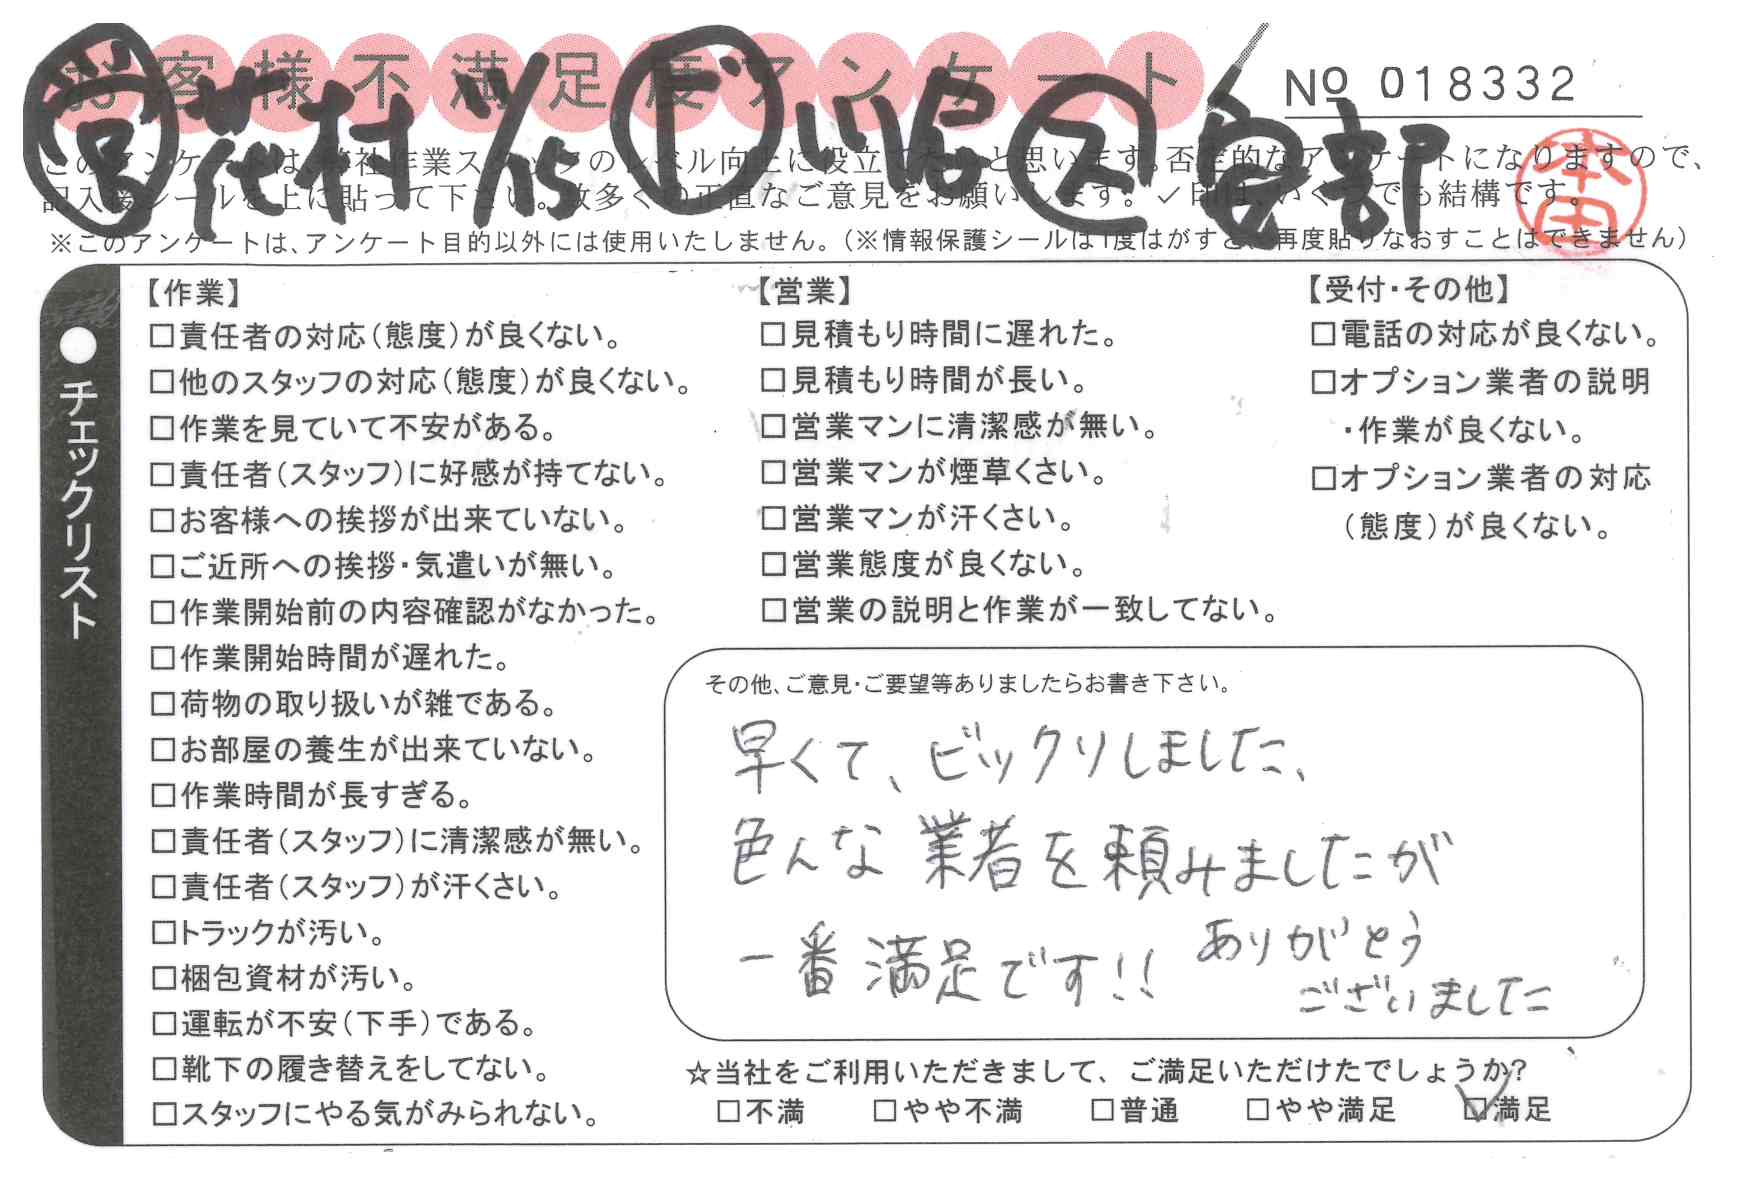 お客様不満足度アンケート
No 018332
営 花村 1/15 ド 川島 ス 安部
本田
このアンケートは、弊社作業スタッフのレベル向上に役立てたいと思います。否定的なアンケートになりますので、
記入後シールを上に貼って下さい。数多くの正直なご意見をお願いします。✓印は、いくつでも結構です。
※このアンケートは、アンケート目的以外には使用いたしません。(※情報保護シールは1度はがすと、再度貼りなおすことはできません)
●チェックリスト
【作業】
□責任者の対応(態度)が良くない。
□他のスタッフの対応(態度)が良くない。
□作業を見ていて不安がある。
□責任者(スタッフ)に好感が持てない。
□お客様への挨拶が出来ていない。
□ご近所への挨拶・気遣いが無い。
□作業開始前の内容確認がなかった。
□作業開始時間が遅れた。
□荷物の取り扱いが雑である。
□お部屋の養生が出来ていない。
□作業時間が長すぎる。
□責任者(スタッフ)に清潔感が無い。
□責任者(スタッフ)が汗くさい。
□トラックが汚い。
□梱包資材が汚い。
□運転が不安(下手)である。
□靴下の履き替えをしてない。
□スタッフにやる気がみられない。
【営業】
□見積もり時間に遅れた。
□見積もり時間が長い。
□営業マンに清潔感が無い。
□営業マンが煙草くさい。
□営業マンが汗くさい。
□営業態度が良くない。
□営業の説明と作業が一致してない。
【受付・その他】
□電話の対応が良くない。
□オプション業者の説明
・作業が良くない。
□オプション業者の対応
(態度)が良くない。
その他、ご意見・ご要望等ありましたらお書き下さい。
早くて、ビックリしました、
色んな業者を頼みましたが
一番満足です!! ありがとう
ございました
☆当社をご利用いただきまして、ご満足いただけたでしょうか?
□不満 □やや不満 □普通 □やや満足 ☑満足